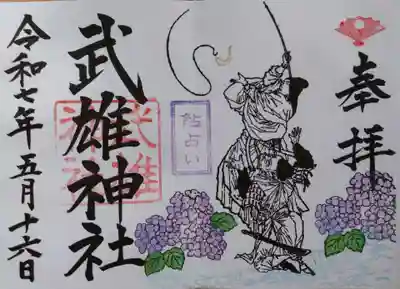 奉拝
鮎占い
武雄神社
令和七年五月十六日